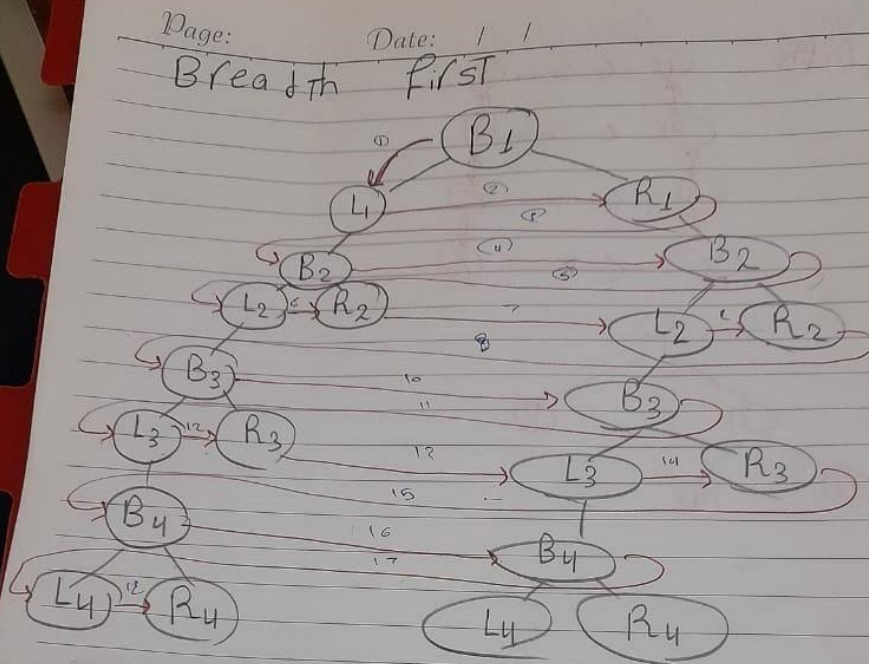 Page: Date: / /
Breadth first
B1
1
L1 2 R1
3
B2 4 B2
5
L2 6 R2 7 L2 R2
8
B3 10 B3
11
L3 12 R3 L3 14 R3
15
B4 16 B4
17
L4 R4 L4 R4